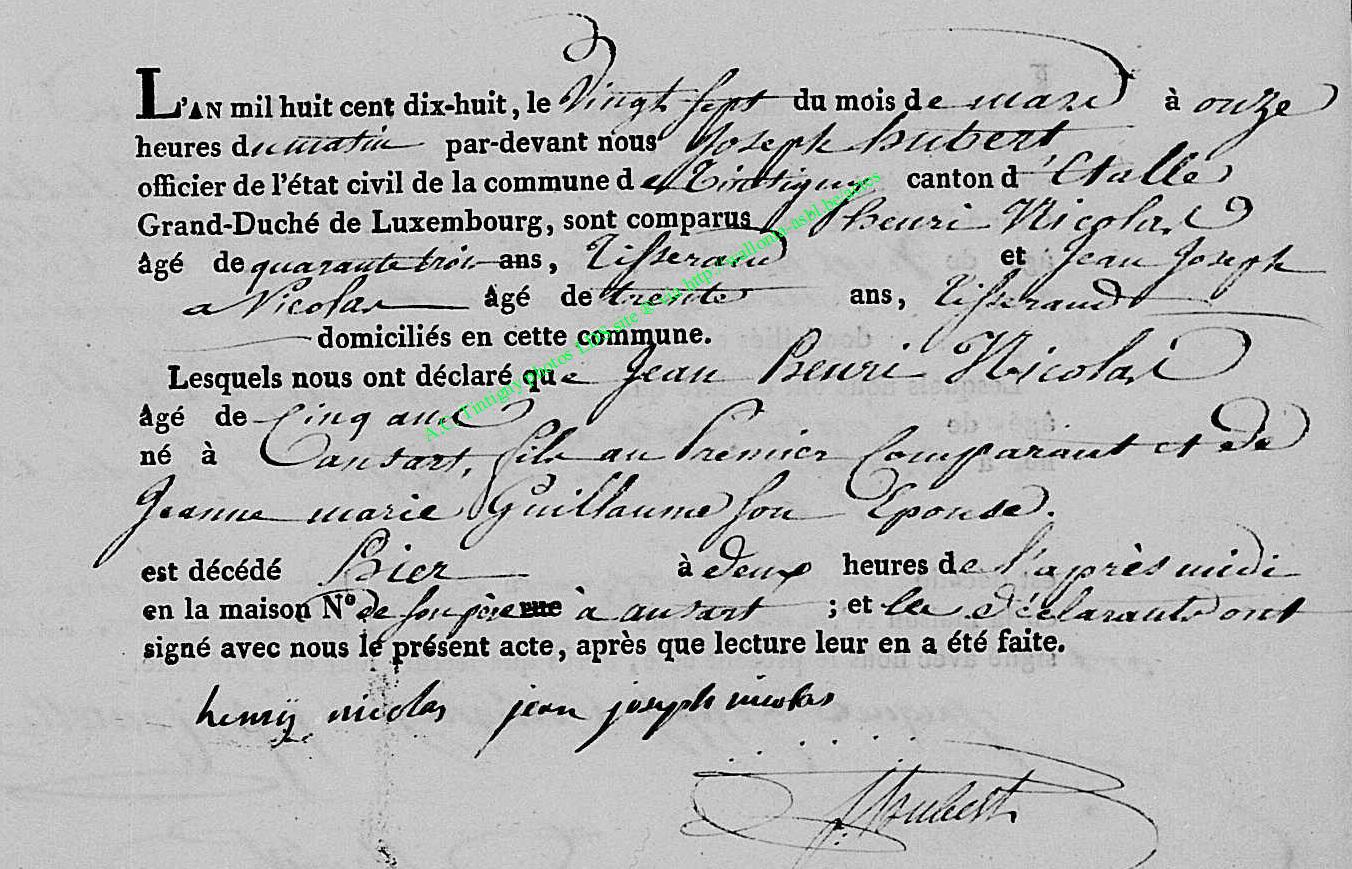 L'AN mil huit cent dix-huit, le Vingt Sept du mois de mars à onze
heures du matin par-devant nous Joseph hubert,
officier de l'état civil de la commune de Tintigny canton d'Etalle
Grand-Duché de Luxembourg, sont comparus henri Nicolas
âgé de quarante trois ans, Tisserand et Jean Joseph
Nicolas âgé de trente ans, Tisserands
domiciliés en cette commune.
Lesquels nous ont déclaré que Jean Henri Nicolas
âgé de Cinq ans
né à ansart, fils au Premier Comparant et de
Jeanne marie Guillaume son Epouse.
est décédé hier à deux heures de l'après midi
en la maison N° de son père rue à ansart ; et les Déclarants ont
signé avec nous le présent acte, après que lecture leur en a été faite.
henry nicolas jean joseph nicolas
J. houbert
A.C. Tintigny photos LDS site © via http://wallonia-asbl.be/actes